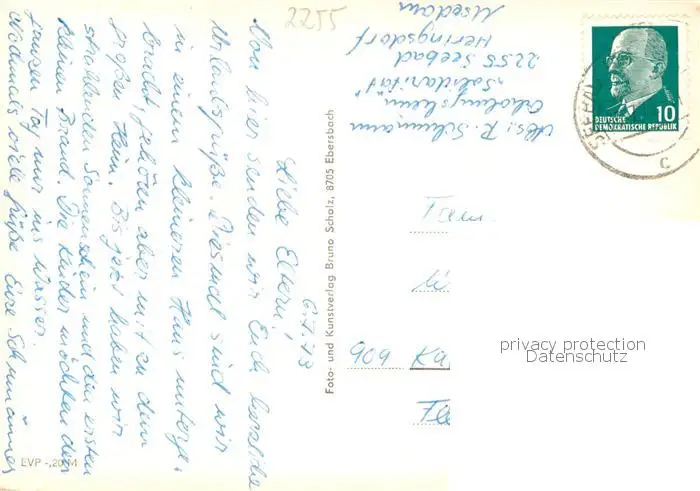 2255
Abs: R. Schumann
Erholungsheim
"Solidarität"
2255 Seebad
Heringsdorf
Usedom
10
DEUTSCHE
DEMOKRATISCHE REPUBLIK
SEEBAD
C
6.7.73
Liebe Eltern!
Von hier senden wir Euch herzliche
Urlaubsgrüße. Diesmal sind wir
in einem kleineren Haus unterge-
bracht, gehören aber mit zu dem
großen Heim. Bis jetzt haben wir
strahlenden Sonnenschein und den ersten
kleinen Brand. Die Kinder möchten den
ganzen Tag nur ins Wasser.
Nochmals viele Grüße Eure Schumänner
Foto- und Kunstverlag Bruno Scholz, 8705 Ebersbach
EVP -,20 M
Fam.
909 Ka
privacy protection
Datenschutz